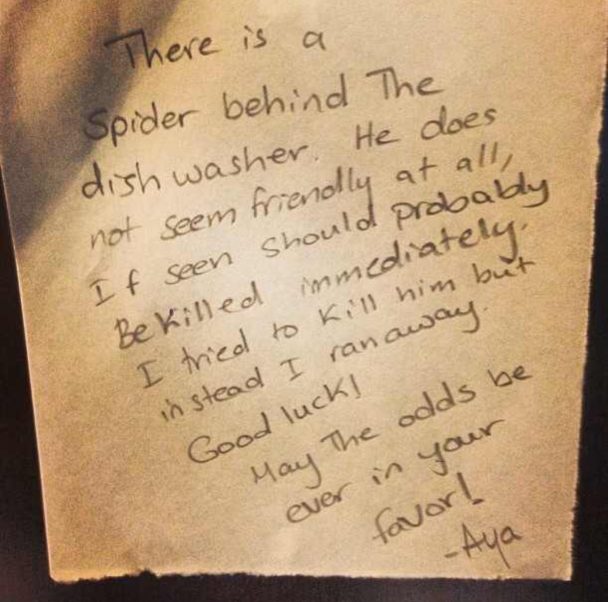 There is a
Spider behind The
dish washer. He does
not seem friendly at all,
If seen should probably
Be killed immediately.
I tried to kill him but
instead I ran away.
Good luck!
May The odds be
ever in your
favor!
-Aya